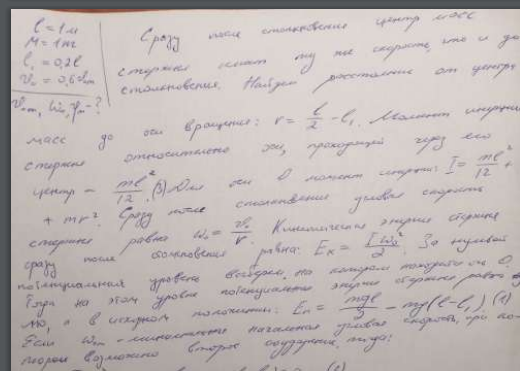 l = 1 м
M = 1 кг
l₁ = 0,2l
Сразу после столкновения центр масс
стержня имеет ту же скорость, что и до
столкновения. Найдем расстояние от центра
масс до оси вращения: r = l/2 - l₁. Момент инерции
стержня относительно оси, проходящей через его
центр - ml²/12. (3) Для оси O момент инерции: I = ml²/12 +
+ mr². Сразу после столкновения угловая скорость
стержня равна ω₀ = v₀/r. Кинетическая энергия стержня
сразу после столкновения равна: Eк = Iω₀²/2. За нулевой
потенциальный уровень выберем, на котором находится ось O.
Тогда на этом уровне потенциальная энергия стержня равна
а в исходном положении: Eп = mgl/2 - mg(l-l₁) (1)
Если ωm - минимальная начальная угловая скорость, при ко-
тором возможно второе соударение, тогда: